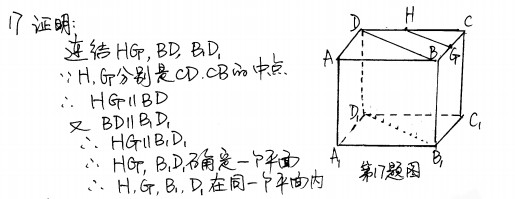 17 证明:
连结 HG, BD, B₁D₁
∵ H, G分别是CD.CB的中点
∴ HG∥BD
又 BD∥B₁D₁
∴ HG∥B₁D₁
∴ HG, B₁D₁确定是一个平面
∴ H, G, B₁, D₁在同一个平面内
D H C
A B G
D₁ C₁
A₁ B₁
第17题图